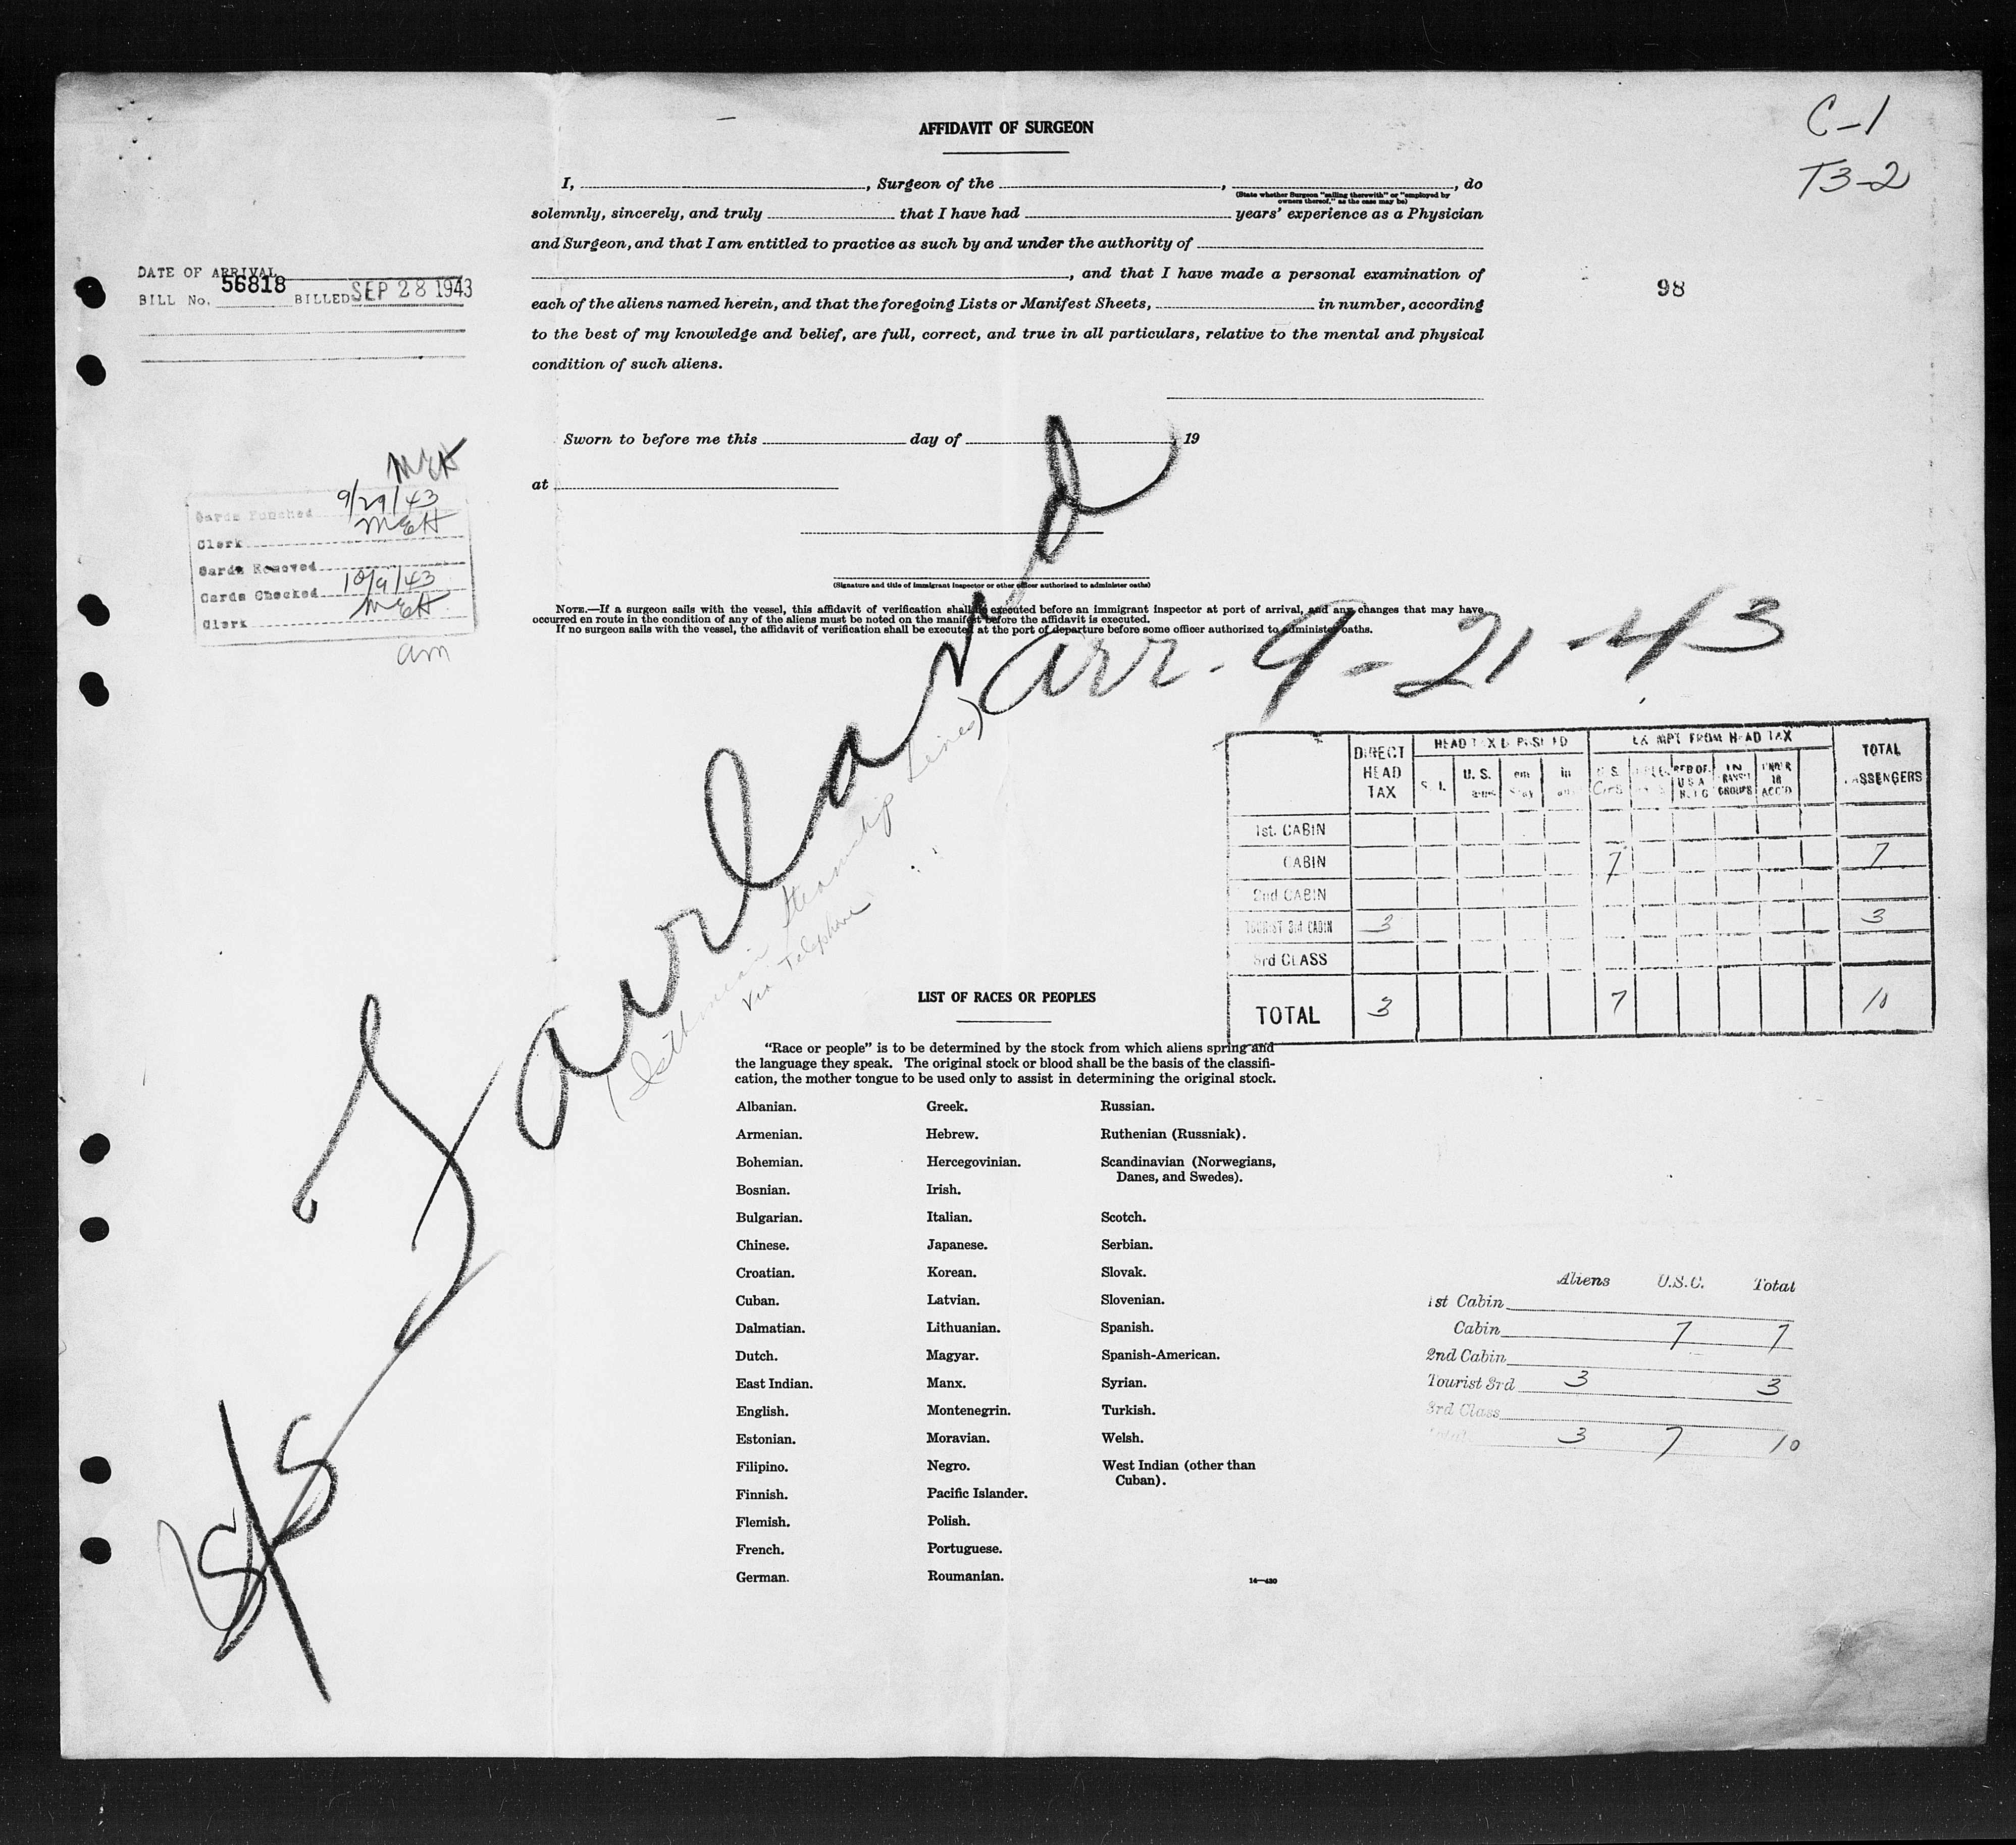 C-1
T3-2
AFFIDAVIT OF SURGEON
I, , Surgeon of the , , do
(State whether Surgeon "sailing therewith" or "employed by
owners thereof," as the case may be)
solemnly, sincerely, and truly that I have had years' experience as a Physician
and Surgeon, and that I am entitled to practice as such by and under the authority of
, and that I have made a personal examination of
each of the aliens named herein, and that the foregoing Lists or Manifest Sheets, in number, according
to the best of my knowledge and belief, are full, correct, and true in all particulars, relative to the mental and physical
condition of such aliens.
DATE OF ARRIVAL
BILL No. 56818 BILLED SEP 28 1943
98
Sworn to before me this day of , 19
at
(Signature and title of immigrant inspector or other officer authorized to administer oaths)
MEH
Cards Punched 9/29/43
Clerk MEH
Cards Removed
Cards Checked 10/9/43
Clerk MEH
am
NOTE.—If a surgeon sails with the vessel, this affidavit of verification shall be executed before an immigrant inspector at port of arrival, and any changes that may have
occurred en route in the condition of any of the aliens must be noted on the manifest before the affidavit is executed.
If no surgeon sails with the vessel, the affidavit of verification shall be executed at the port of departure before some officer authorized to administer oaths.
arr. 9-21-43
S/S
(Isthmian Steamship Lines)
Via Telephone
DIRECT HEAD TAX
HEAD TAX DEPOSITED
EXEMPT FROM HEAD TAX
TOTAL PASSENGERS
U. S.
U.S. CITS
IN TRANSIT GROUPS
UNDER 16 ACC'D
1st. CABIN
CABIN 7 7
2nd CABIN
TOURIST 3rd CABIN 3 3
3rd CLASS
TOTAL 3 7 10
LIST OF RACES OR PEOPLES
"Race or people" is to be determined by the stock from which aliens spring and
the language they speak. The original stock or blood shall be the basis of the classifi-
cation, the mother tongue to be used only to assist in determining the original stock.
Albanian.
Armenian.
Bohemian.
Bosnian.
Bulgarian.
Chinese.
Croatian.
Cuban.
Dalmatian.
Dutch.
East Indian.
English.
Estonian.
Filipino.
Finnish.
Flemish.
French.
German.
Greek.
Hebrew.
Hercegovinian.
Irish.
Italian.
Japanese.
Korean.
Latvian.
Lithuanian.
Magyar.
Manx.
Montenegrin.
Moravian.
Negro.
Pacific Islander.
Polish.
Portuguese.
Roumanian.
Russian.
Ruthenian (Russniak).
Scandinavian (Norwegians,
Danes, and Swedes).
Scotch.
Serbian.
Slovak.
Slovenian.
Spanish.
Spanish-American.
Syrian.
Turkish.
Welsh.
West Indian (other than
Cuban).
14—430
Aliens U.S.C. Total
1st Cabin
Cabin 7 7
2nd Cabin
Tourist 3rd 3 3
3rd Class
Total 3 7 10